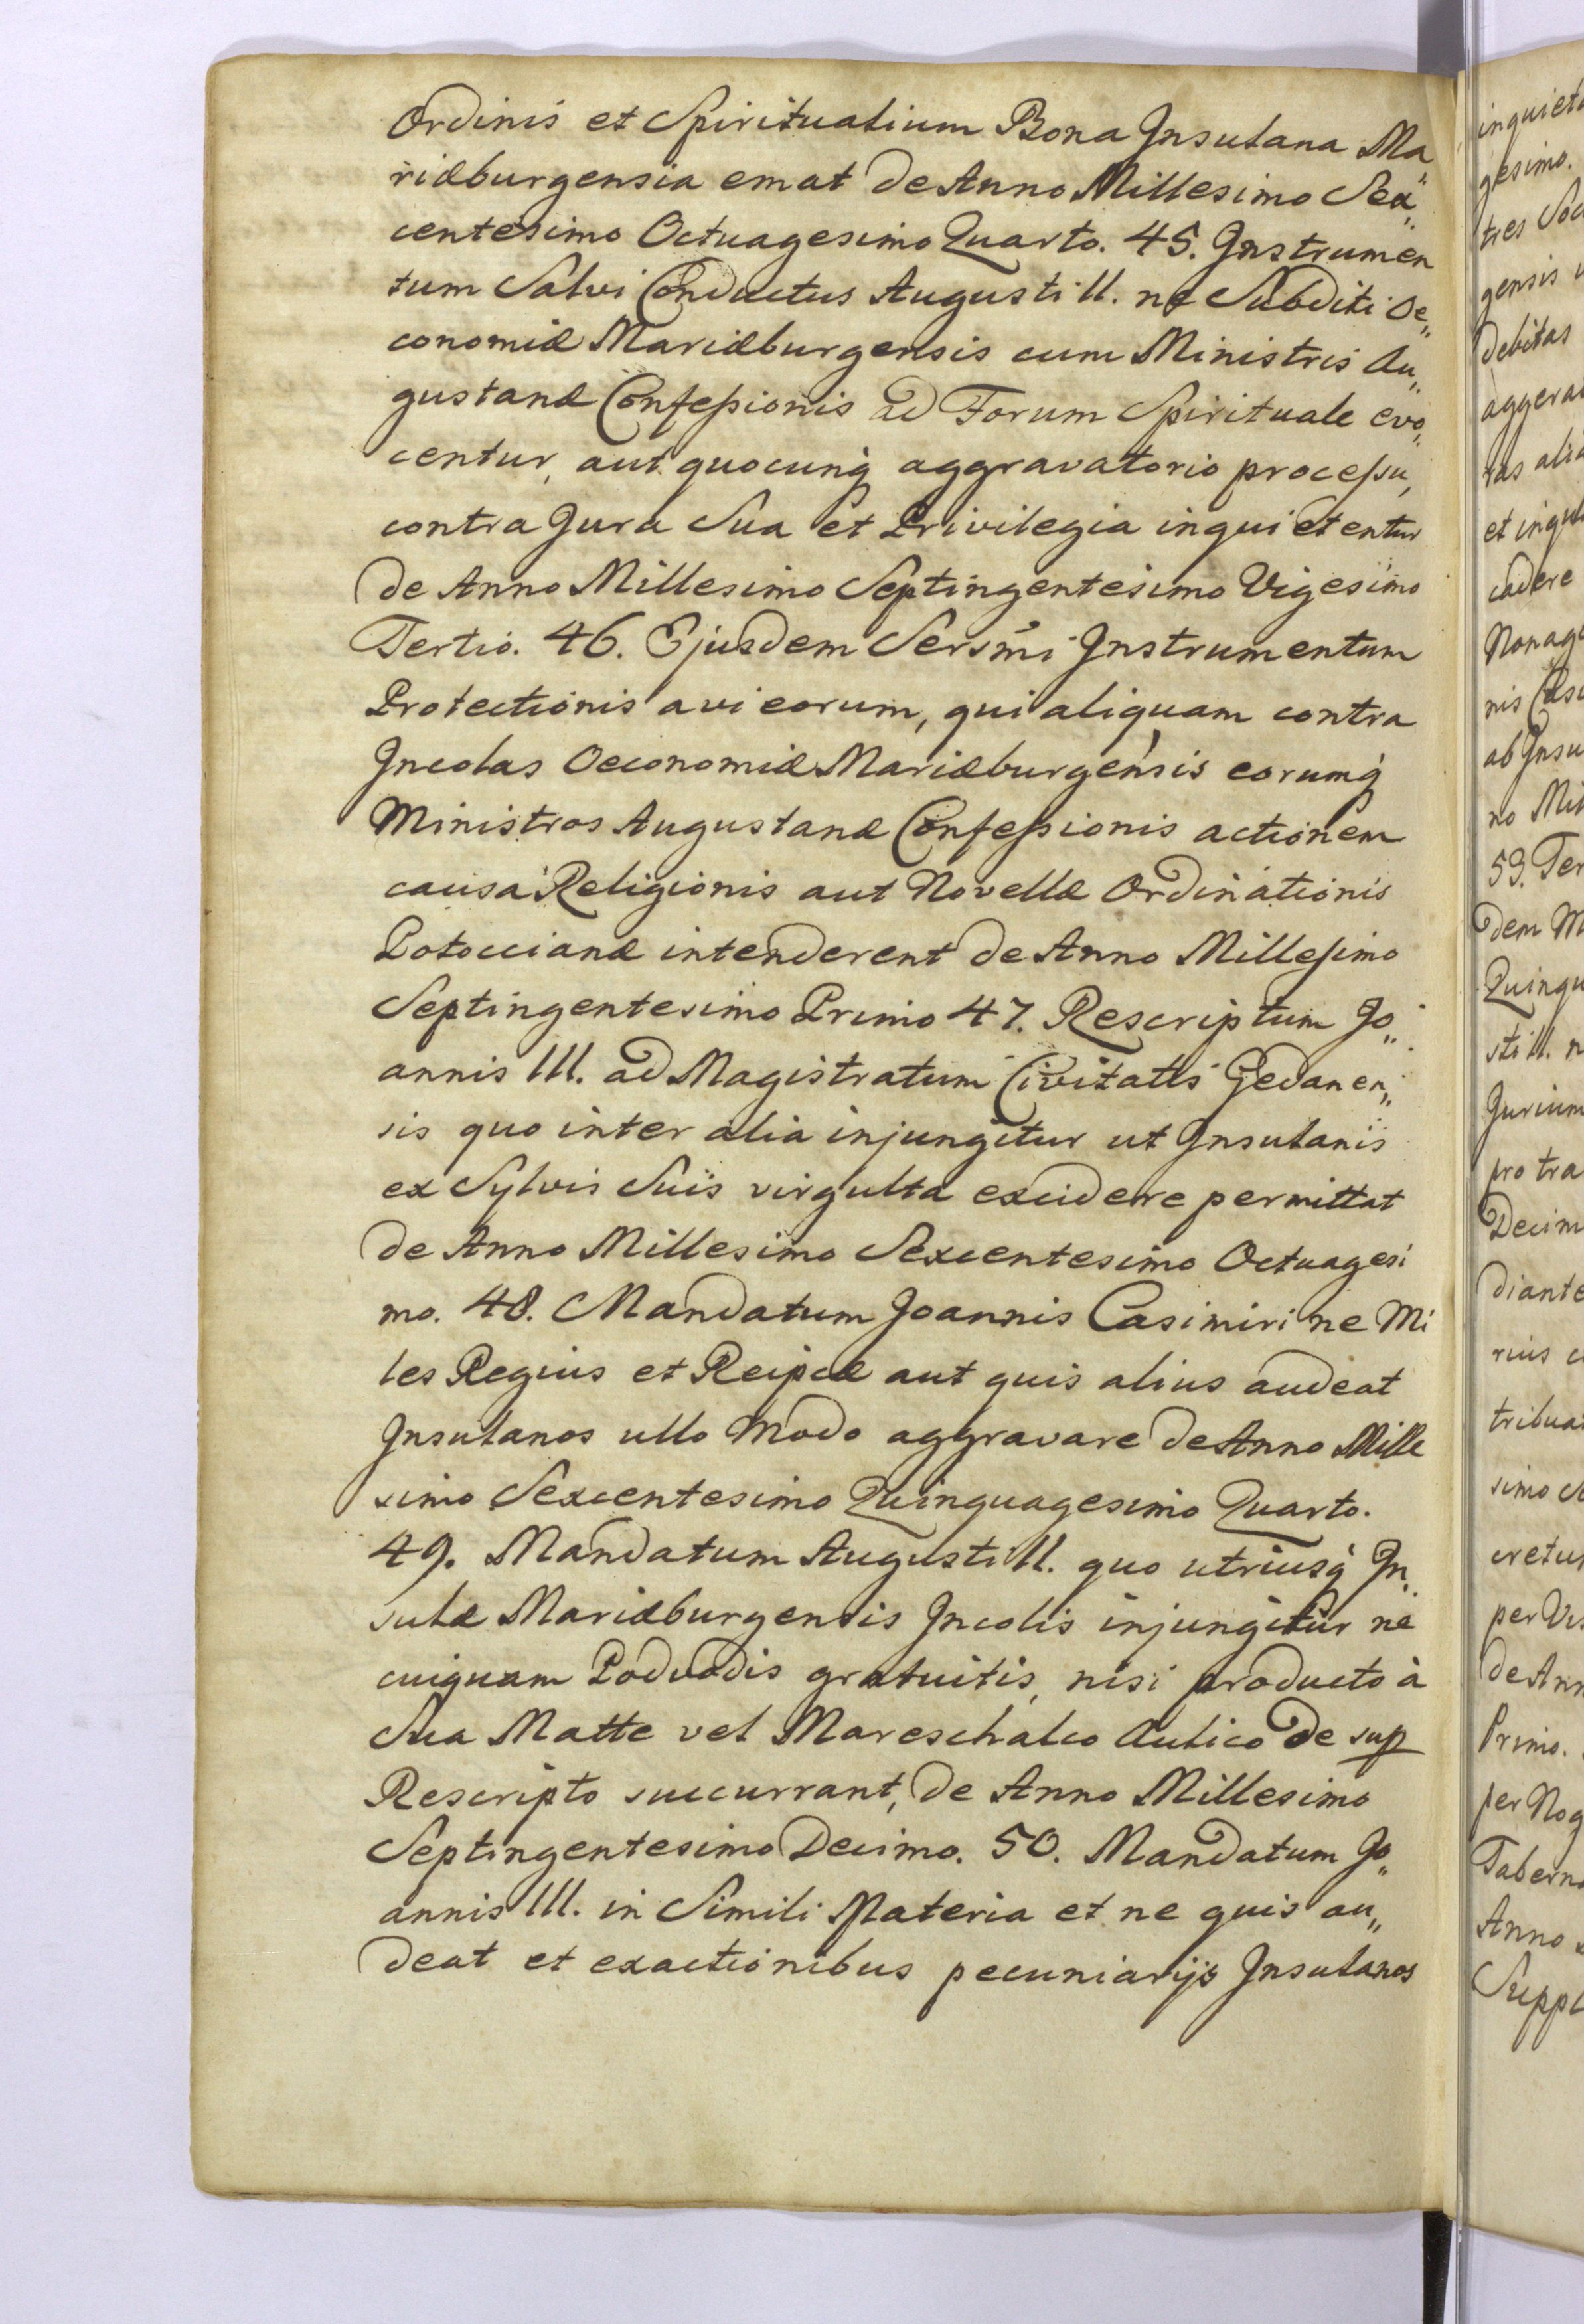 Ordinis et Spiritualium Bona Insulana Ma„
riæburgensia emat de Anno Millesimo Sex„
centesimo Octuagesimo Quarto. 45. Instrumen
tum Salvi Conductus Augusti II. ne Subditi Oe„
conomiæ Mariæburgensis cum Ministris Au„
gustanæ Confessionis ad Forum Spirituale evo„
centur, aut quocunq́ aggravatorio processu,
contra Jura Sua et Privilegia inquietentur
de Anno Millesimo Septingentesimo Vigesimo
Tertio. 46. Ejusdem Sersmi Instrumentum
Protectionis a vi eorum, qui aliquam contra
Incolas Oeconomiæ Mariæburgensis eorumq́
Ministros Augustanæ Confessionis actionem
causa Religionis aut Novellæ Ordinationis
Potoccianæ intenderent de Anno Millesimo
Septingentesimo Primo 47. Rescriptum Jo„
annis III. ad Magistratum Civitatis Gedanen„
sis quo inter alia injungitur ut Insulanis
ex Sylvis Suis virgulta excidere permittat
de Anno Millesimo Sexcentesimo Octuagesi
mo. 48. Mandatum Joannis Casimiri ne Mi
les Regius et Reipcæ aut quis alius audeat
Insulanos ullo modo aggravare de Anno Mille
simo Sexcentesimo Quinquagesimo Quarto.
49. Mandatum Augusti II. quo utriusq́ In„
sulæ Mariæburgensis Incolis injungitur ne
cuiquam Podvodis gratuitis, nisi producto à
Sua Matte vel Mareschalco Aulico de sup
Rescripto succurrant, de Anno Millesimo
Septingentesimo Decimo. 50. Mandatum Jo„
annis III. in Simili Materia et ne quis au„
deat et exactionibus pecuniarijs Insulanos